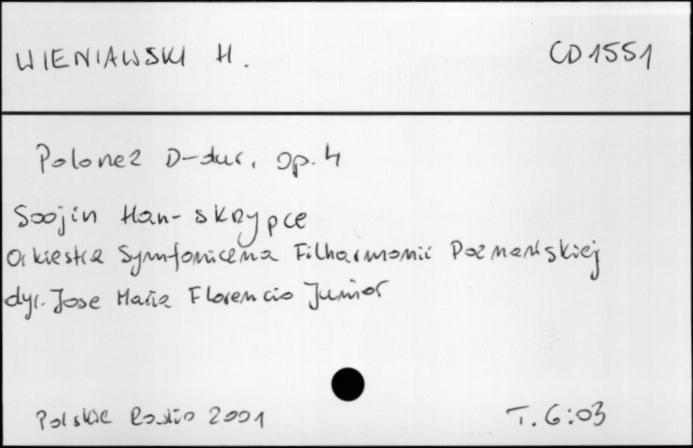 WIENIAWSKI H. CD 1551
Polonez D-dur, op. 4
Soojin Han - skrzypce
Orkiestra Symfoniczna Filharmonii Poznańskiej
dyr. Jose Maria Florencio Junior
Polskie Radio 2001 T. 6:03